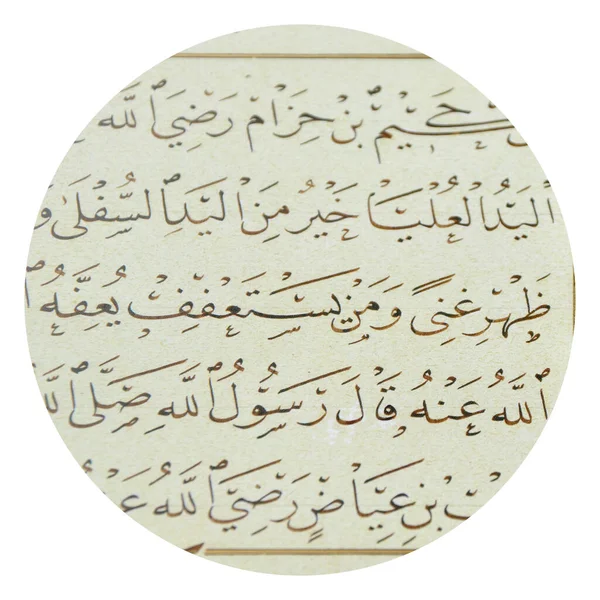 حَكِيْمِ بْنِ حِزَامٍ رَضِيَ اللّٰهُ
الْيَدُ الْعُلْيَا خَيْرٌ مِنَ الْيَدِ السُّفْلَى وَ
ظَهْرِ غِنًى وَمَنْ يَسْتَعْفِفْ يُعِفَّهُ
اللّٰهُ عَنْهُ قَالَ رَسُوْلُ اللّٰهِ صَلَّى اللّٰه
بْنِ عِيَاضٍ رَضِيَ اللّٰهُ